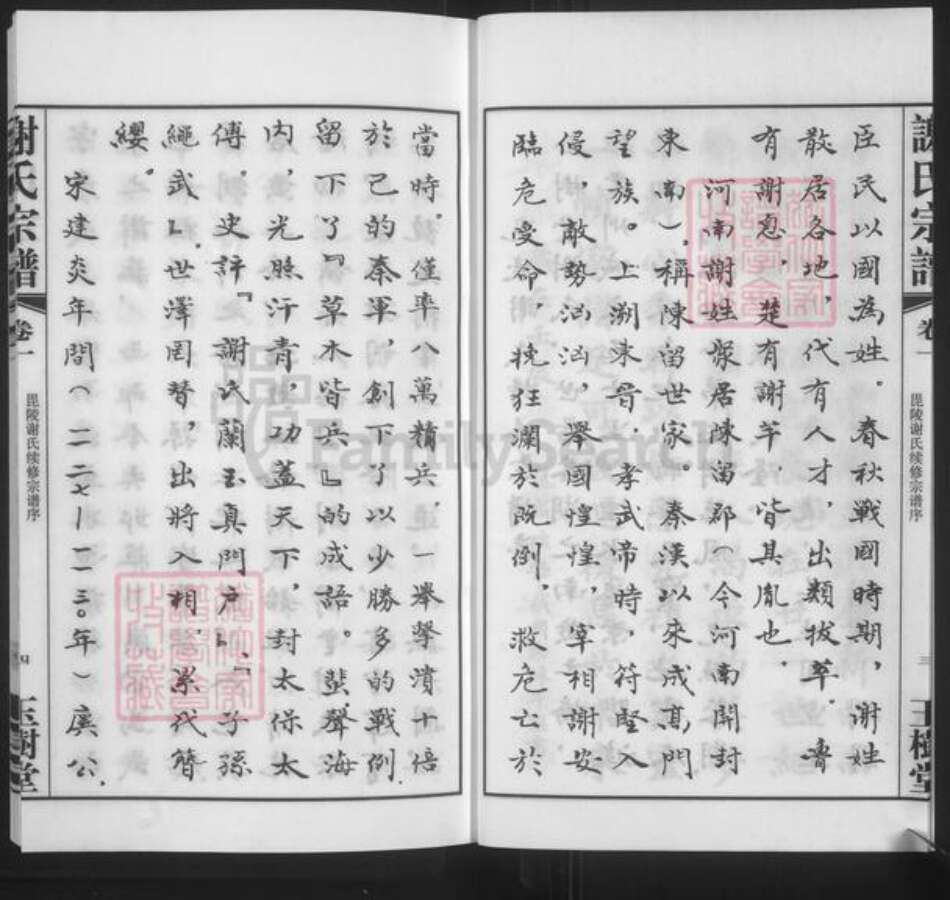 謝氏宗譜
卷一
毘陵谢氏续修宗谱序
三
玉樹堂
臣民以國為姓。春秋戰國時期,謝姓
散居各地,代有人才,出類拔萃。魯
有謝息,楚有謝芊,皆其胤也。
河南謝姓,聚居陳留郡(今河南開封
東南),稱陳留世家。秦漢以來成高門
望族。上溯東晉,孝武帝時,符堅入
侵,敵勢汹汹,舉國惶惶,宰相謝安
臨危受命,挽狂瀾於既倒,救危亡於
當時。僅率八萬精兵,一舉擊潰十倍
於己的秦軍,創下了以少勝多的戰例,
留下了『草木皆兵』的成語。蜚聲海
内,光照汗青,功蓋天下,封太保太
傅。史評『謝氏蘭玉真門户』、『子孫
繩武』。世澤罔替,出將入相,累代簪
纓。
宋建炎年間(一一二七——一一三〇年)廣公,
謝氏宗譜
卷一
毘陵谢氏续修宗谱序
四
玉樹堂
FamilySearch